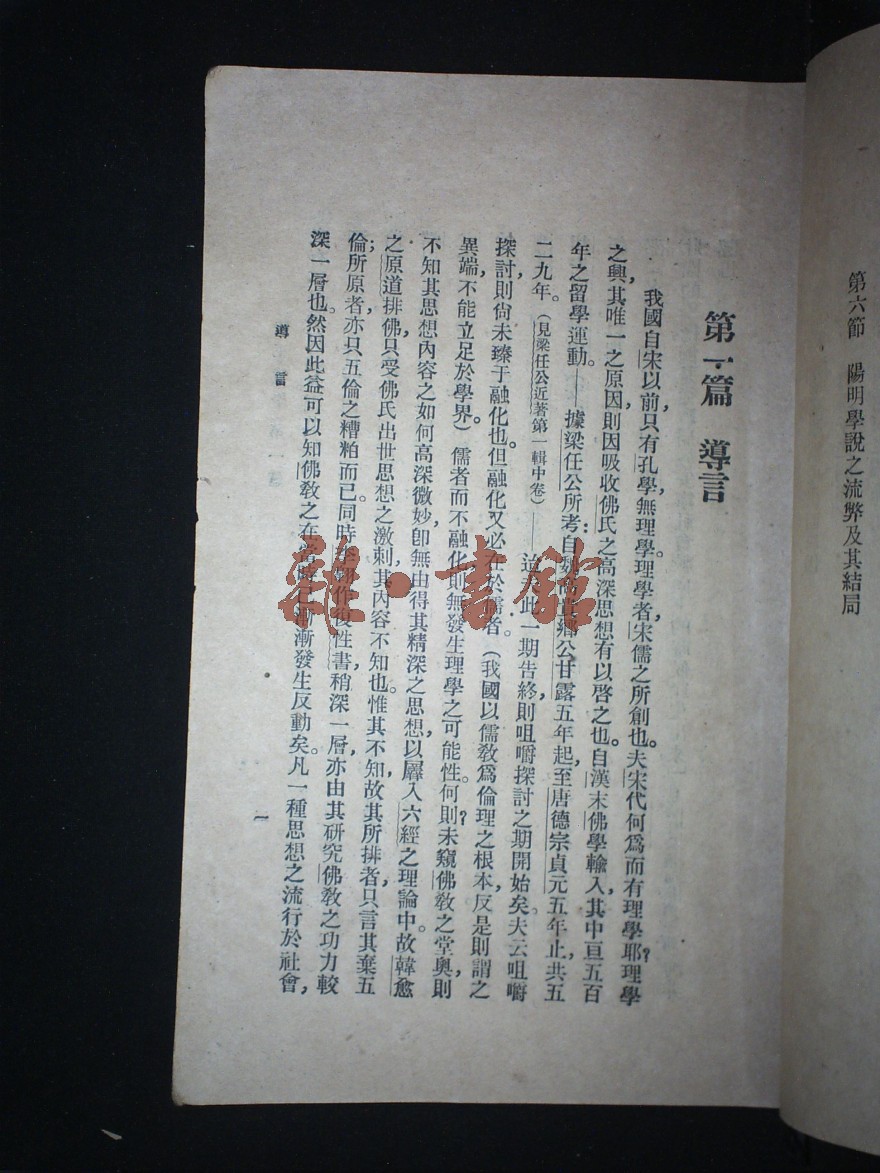 第六節　陽明學說之流弊及其結局
第一篇　導言
我國自宋以前，只有孔學，無理學。理學者，宋儒之所創也。夫宋代何爲而有理學耶？理學
之興，其唯一之原因，則因吸收佛氏之高深思想有以啓之也。自漢末佛學輸入，其中亘五百
年之留學運動。——據梁任公所考：自魏高貴鄉公甘露五年起，至唐德宗貞元五年止，共五
二九年。（見梁任公近著第一輯中卷）——迨至此一期告終，則咀嚼探討之期開始矣。夫云咀嚼
探討，則尙未臻于融化也。但融化又必在於儒者。（我國以儒敎爲倫理之根本，反是則謂之
異端，不能立足於學界）儒者而不融化，則無發生理學之可能性。何則？未窺佛敎之堂奧，則
不知其思想內容之如何高深微妙，卽無由得其精深之思想，以羼入六經之理論中。故韓愈
之原道排佛，只受佛氏出世思想之激刺，其內容不知也。惟其不知，故其所排者，只言其棄五
倫；所原者，亦只五倫之糟粕而已。同時李翱作復性書，稍深一層，亦由其研究佛敎之功力較
深一層也。然因此益可以知佛敎之在當時已漸漸發生反動矣。凡一種思想之流行於社會，
導言
一
雜·書館